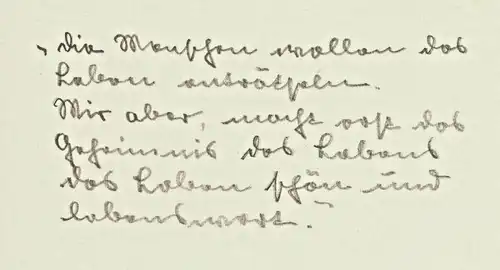 „Die Menschen wollen das
Leben enträtseln.
Mir aber, macht erst das
Geheimnis des Lebens
das Leben schön und
lebenswert.“